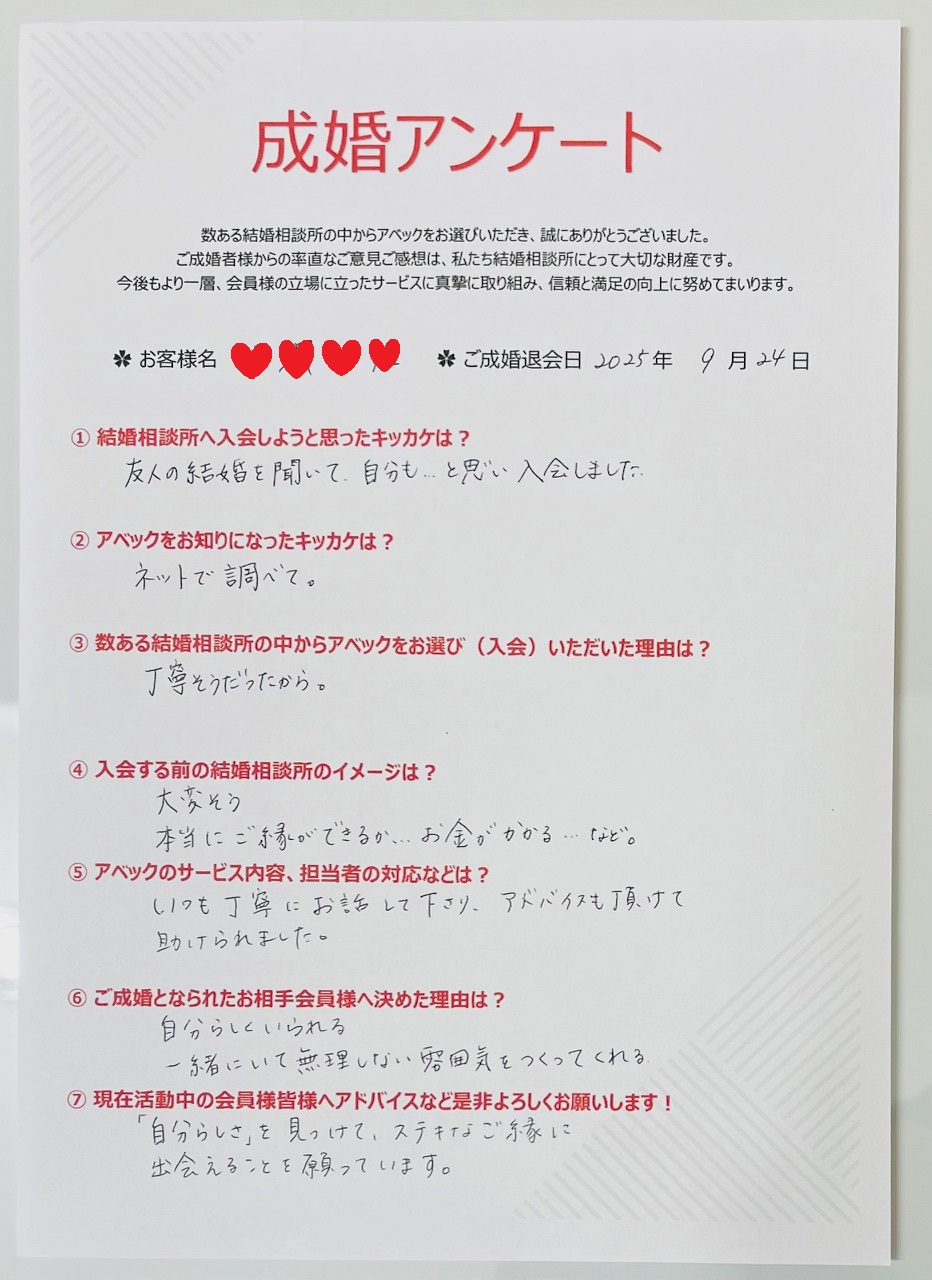 成婚アンケート
数ある結婚相談所の中からアベックをお選びいただき、誠にありがとうございました。
ご成婚者様からの率直なご意見ご感想は、私たち結婚相談所にとって大切な財産です。
今後もより一層、会員様の立場に立ったサービスに真摯に取り組み、信頼と満足の向上に努めてまいります。
✽ お客様名 ✽ ご成婚退会日 2025年 9月24日
① 結婚相談所へ入会しようと思ったキッカケは?
友人の結婚を聞いて、自分も…と思い入会しました。
② アベックをお知りになったキッカケは?
ネットで調べて。
③ 数ある結婚相談所の中からアベックをお選び(入会)いただいた理由は?
丁寧そうだったから。
④ 入会する前の結婚相談所のイメージは?
大変そう
本当にご縁ができるか…お金がかかる…など。
⑤ アベックのサービス内容、担当者の対応などは?
いつも丁寧にお話して下さり、アドバイスも頂けて
助けられました。
⑥ ご成婚となられたお相手会員様へ決めた理由は?
自分らしくいられる
一緒にいて無理しない雰囲気をつくってくれる
⑦ 現在活動中の会員様皆様へアドバイスなど是非よろしくお願いします!
「自分らしさ」を見つけて、ステキなご縁に
出会えることを願っています。